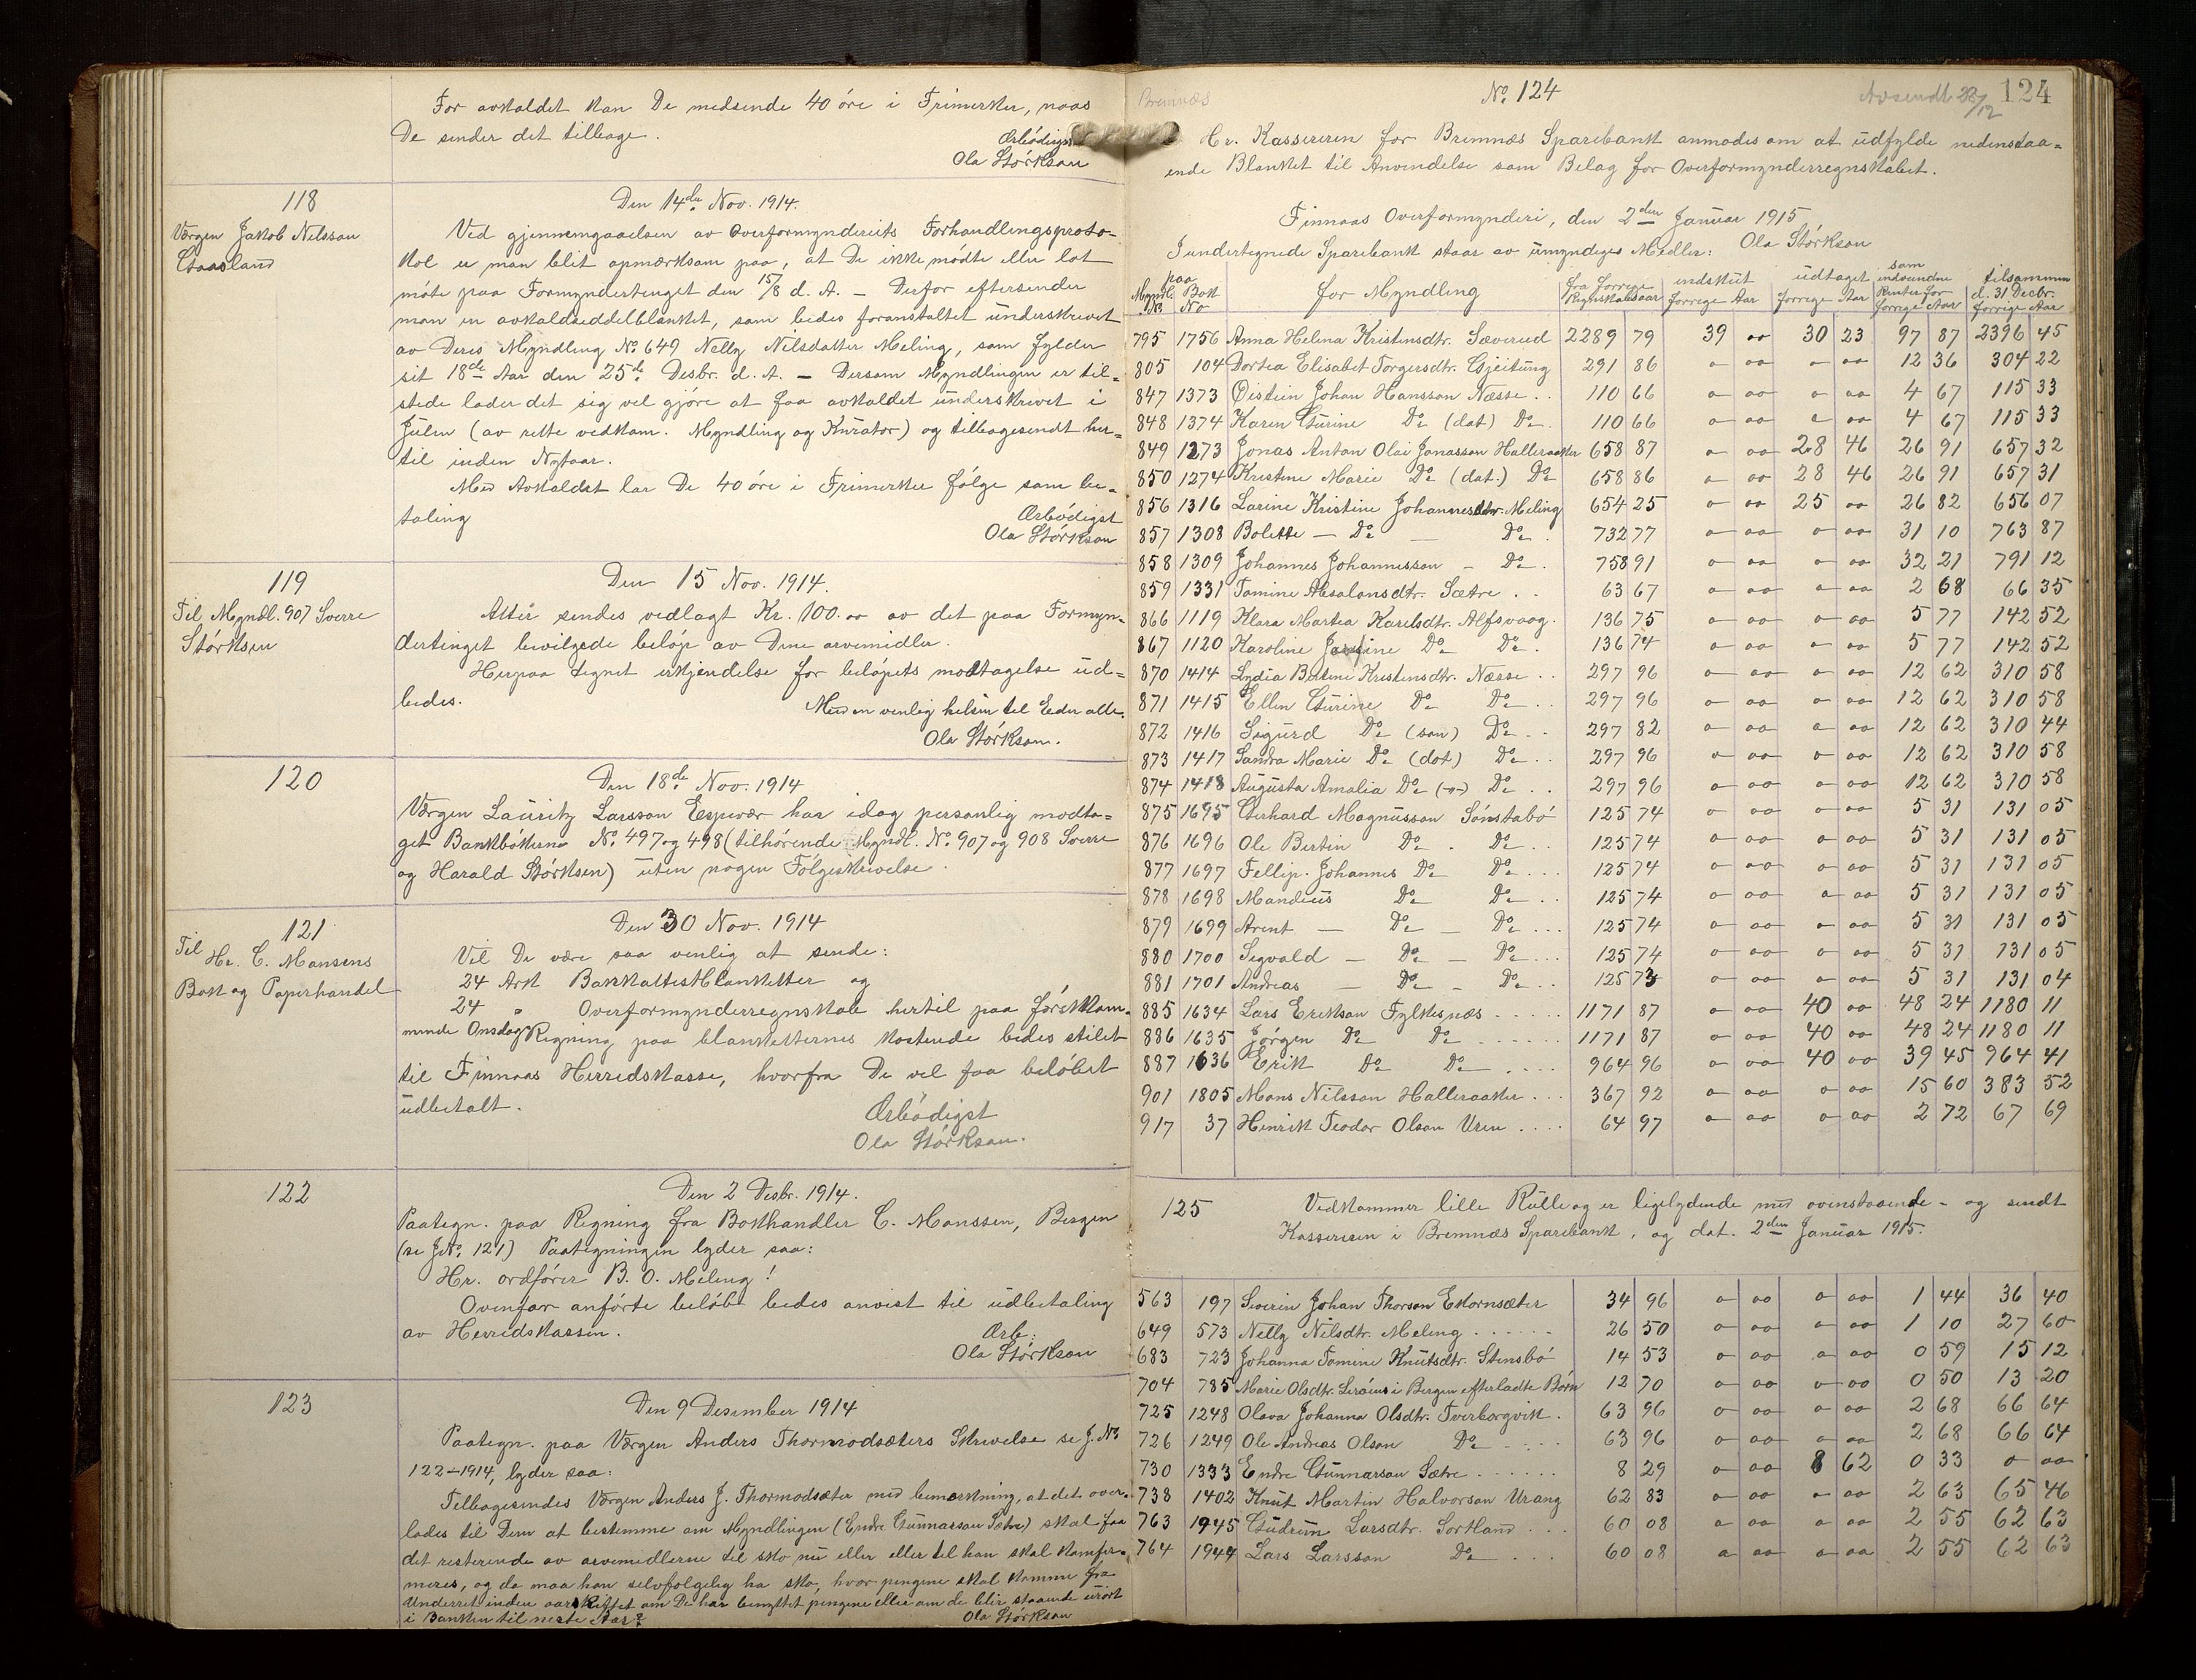 For avkaldet kan De medsende 40 öre i Frimerker, naar
De sender det tilbage.
Ærbödigst
Ola Störkson
118
Værgen Jakob Nilsson
Gaasland
Den 14de Nov. 1914.
Ved gjennemgaaelsen av Overformynderiets Forhandlingsproto-
kol er man blit opmærksom paa, at De ikke mödte eller lot
möte paa Formyndertinget den 15/8 d. A. — Derfor eftersender
man en avkaldseddelblanket, som bedes foranstaltet underskrevet
av Deres Myndling No. 649 Nelly Nilsdatter Meling, som fylder
sit 18de Aar den 25de Desbr. d. A. — Dersom Myndlingen er til-
stede lader det sig vel gjöre at faa avkaldet underskrevet i
Julen (av rette vedkom. Myndling og Kurator) og tilbagesendt her-
til inden Nytaar.
Med Avkaldet lar De 40 öre i Frimerker fölge som be-
taling
Ærbödigst
Ola Störkson
119
Til Myndl. 907 Sverre
Störksen
Den 15 Nov. 1914.
Atter sendes vedlagt Kr. 100.00 av det paa Formyn-
dertinget bevilgede belöp av Dine arvemidler.
Herpaa tegnet erkjendelse for belöpets modtagelse ud-
bedes.
Med en venlig hilsen til Eder alle.
Ola Störkson.
120
Den 18de Nov. 1914
Værgen Lauritz Larsson Espevær har idag personlig modta-
get Bankbökerne No. 497 og 498 (tilhörende Myndl. No. 907 og 908 Sverre
og Harald Störksen) uten nogen Fölgeskrivelse.
121
Til Hr. C. Monsens
Bok og Papirhandel
Den 30 Nov. 1914
Vil De være saa venlig at sende:
24 Ark Bankattestblanketter og
24 " Overformynderregnskab hertil paa förstkom-
mende Onsdag. Regning paa blanketternes kostende bedes stilet
til Finnaas Herredskasse, hvorfra De vil faa belöbet
udbetalt.
Ærbödigst
Ola Störkson.
122
Den 2 Desbr. 1914.
Paategn. paa Regning fra Bokhandler C. Monssen, Bergen
(se J.No. 121) Paategningen lyder saa:
Hr. ordförer B. O. Meling!
Ovenfor anförte belöb bedes anvist til udbetaling
av Herredskassen.
Ærb.
Ola Störkson
123
Den 9 Desember 1914
Paategn. paa Værgen Anders Thormodsæters Skrivelse se J. No
122-1914, lyder saa:
Tilbagesendes Værgen Anders J. Thormodsæter med bemerkning, at det over-
lades til Dem at bestemme om Myndlingen (Endre Gunnarson Sætre) skal faa
det resterende av arvemidlerne til sko nu eller eller til han skal konfir-
meres, og da maa han selvfölgelig ha sko, hvor pengene skal komme fra
Underret inden aarskiftet om De har benyttet pengene eller om de blir staaende urört
i Banken til neste Aar?
Ola Störkson
Bremnæs
No. 124
Avsendt 28/12
124
Hr. Kassereren for Bremnæs Sparebank anmodes om at udfylde nedenstaa-
ende Blanket til Anvendelse som Belag for Overformynderregnskabet.
Finnaas Overformynderi, den 2den Januar 1915
Ola Störkson
I undertegnede Sparebank staar av umyndiges Midler:
Myndl. No | paa Bok No | for Myndling | fra forrige Regnskabsaar | indskut forrige Aar | udtaget forrige Aar | som indvundne Renter for forrige Aar | tilsammen d. 31 Decbr. forrige Aar
795 1756 Anna Helena Kristensdtr. Sæverud 2289 79 39 00 30 23 97 87 2396 45
805 104 Dortea Elisabet Torgersdtr. Gjeitung 291 86 0 00 0 00 12 36 304 22
847 1373 Östein Johan Hansson Næsse . . 110 66 0 00 0 00 4 67 115 33
848 1374 Karen Gurine Do (dat) Do. 110 66 0 00 0 00 4 67 115 33
849 1273 Jonas Anton Olai Jonasson Halleraaker 658 87 0 00 28 46 26 91 657 32
850 1274 Kristine Marie Do (dat.) Do 658 86 0 00 28 46 26 91 657 31
856 1316 Larine Kristine Johannesdtr. Meling 654 25 0 00 25 00 26 82 656 07
857 1308 Bolette — Do — Do. 732 77 0 00 0 00 31 10 763 87
858 1309 Johannes Johannesson — Do. 758 91 0 00 0 00 32 21 791 12
859 1331 Tomine Absalonsdtr. Sætre . . 63 67 0 00 0 00 2 68 66 35
866 1119 Klara Martea Karlsdtr. Alfsvaag. 136 75 0 00 0 00 5 77 142 52
867 1120 Karoline Do Do. 136 74 0 00 0 00 5 77 142 52
870 1414 Lydia Bertine Kristensdtr. Næsse . . 297 96 0 00 0 00 12 62 310 58
871 1415 Ellen Gurine Do Do . . 297 96 0 00 0 00 12 62 310 58
872 1416 Sigurd Do (søn) Do . . 297 82 0 00 0 00 12 62 310 44
873 1417 Sandra Marie Do (dat) Do . . 297 96 0 00 0 00 12 62 310 58
874 1418 Augusta Amalia Do (-"-) Do . . 297 96 0 00 0 00 12 62 310 58
875 1695 Gerhard Magnusson Sönstabö 125 74 0 00 0 00 5 31 131 05
876 1696 Ole Bertin Do . Do . . 125 74 0 00 0 00 5 31 131 05
877 1697 Fellip. Johannes Do Do . . . 125 74 0 00 0 00 5 31 131 05
878 1698 Mandius Do Do . . 125 74 0 00 0 00 5 31 131 05
879 1699 Arent — Do — Do . . . 125 74 0 00 0 00 5 31 131 05
880 1700 Sigvald — Do — Do . . . 125 74 0 00 0 00 5 31 131 05
881 1701 Andreas — Do — Do . . 125 73 0 00 0 00 5 31 131 04
885 1634 Lars Erikson Fylkesnæs . . . . . 1171 87 0 00 40 00 48 24 1180 11
886 1635 Jörgen Do Do . . . . . . 1171 87 0 00 40 00 48 24 1180 11
887 1636 Erik Do Do . . . . 964 96 0 00 40 00 39 45 964 41
901 1805 Mons Nilsson Halleraaker . . . 367 92 0 00 0 00 15 60 383 52
917 37 Henrik Teodor Olson Uren . . . . 64 97 0 00 0 00 2 72 67 69
125
Vedkommer lille Rulle og er ligelydende med ovenstaaende - og sendt
Kassereren i Bremnæs Sparebank, og dat. 2den Januar 1915.
563 197 Severin Johan Thorson Ekornsæter 34 96 0 00 0 00 1 44 36 40
649 573 Nelly Nilsdtr. Meling . . . . . . 26 50 0 00 0 00 1 10 27 60
683 723 Johanna Tomine Knutsdtr. Stensbö 14 53 0 00 0 00 0 59 15 12
704 785 Marie Olsdtr. i Bergen efterladte Börn 12 70 0 00 0 00 0 50 13 20
725 1248 Olava Johanna Olsdtr. Tverborgvik . 63 96 0 00 0 00 2 68 66 64
726 1249 Ole Andreas Olson Do . . . . 63 96 0 00 0 00 2 68 66 64
730 1333 Endre Gunnarson Sætre . . . . . . 8 29 0 00 8 62 0 33 0 00
738 1402 Knut Martin Halvorson Urang 62 83 0 00 0 00 2 63 65 46
763 1945 Gudrun Larsdtr. Sortland . . . 60 08 0 00 0 00 2 55 62 63
764 1944 Lars Larsson Do . . . 60 08 0 00 0 00 2 55 62 63